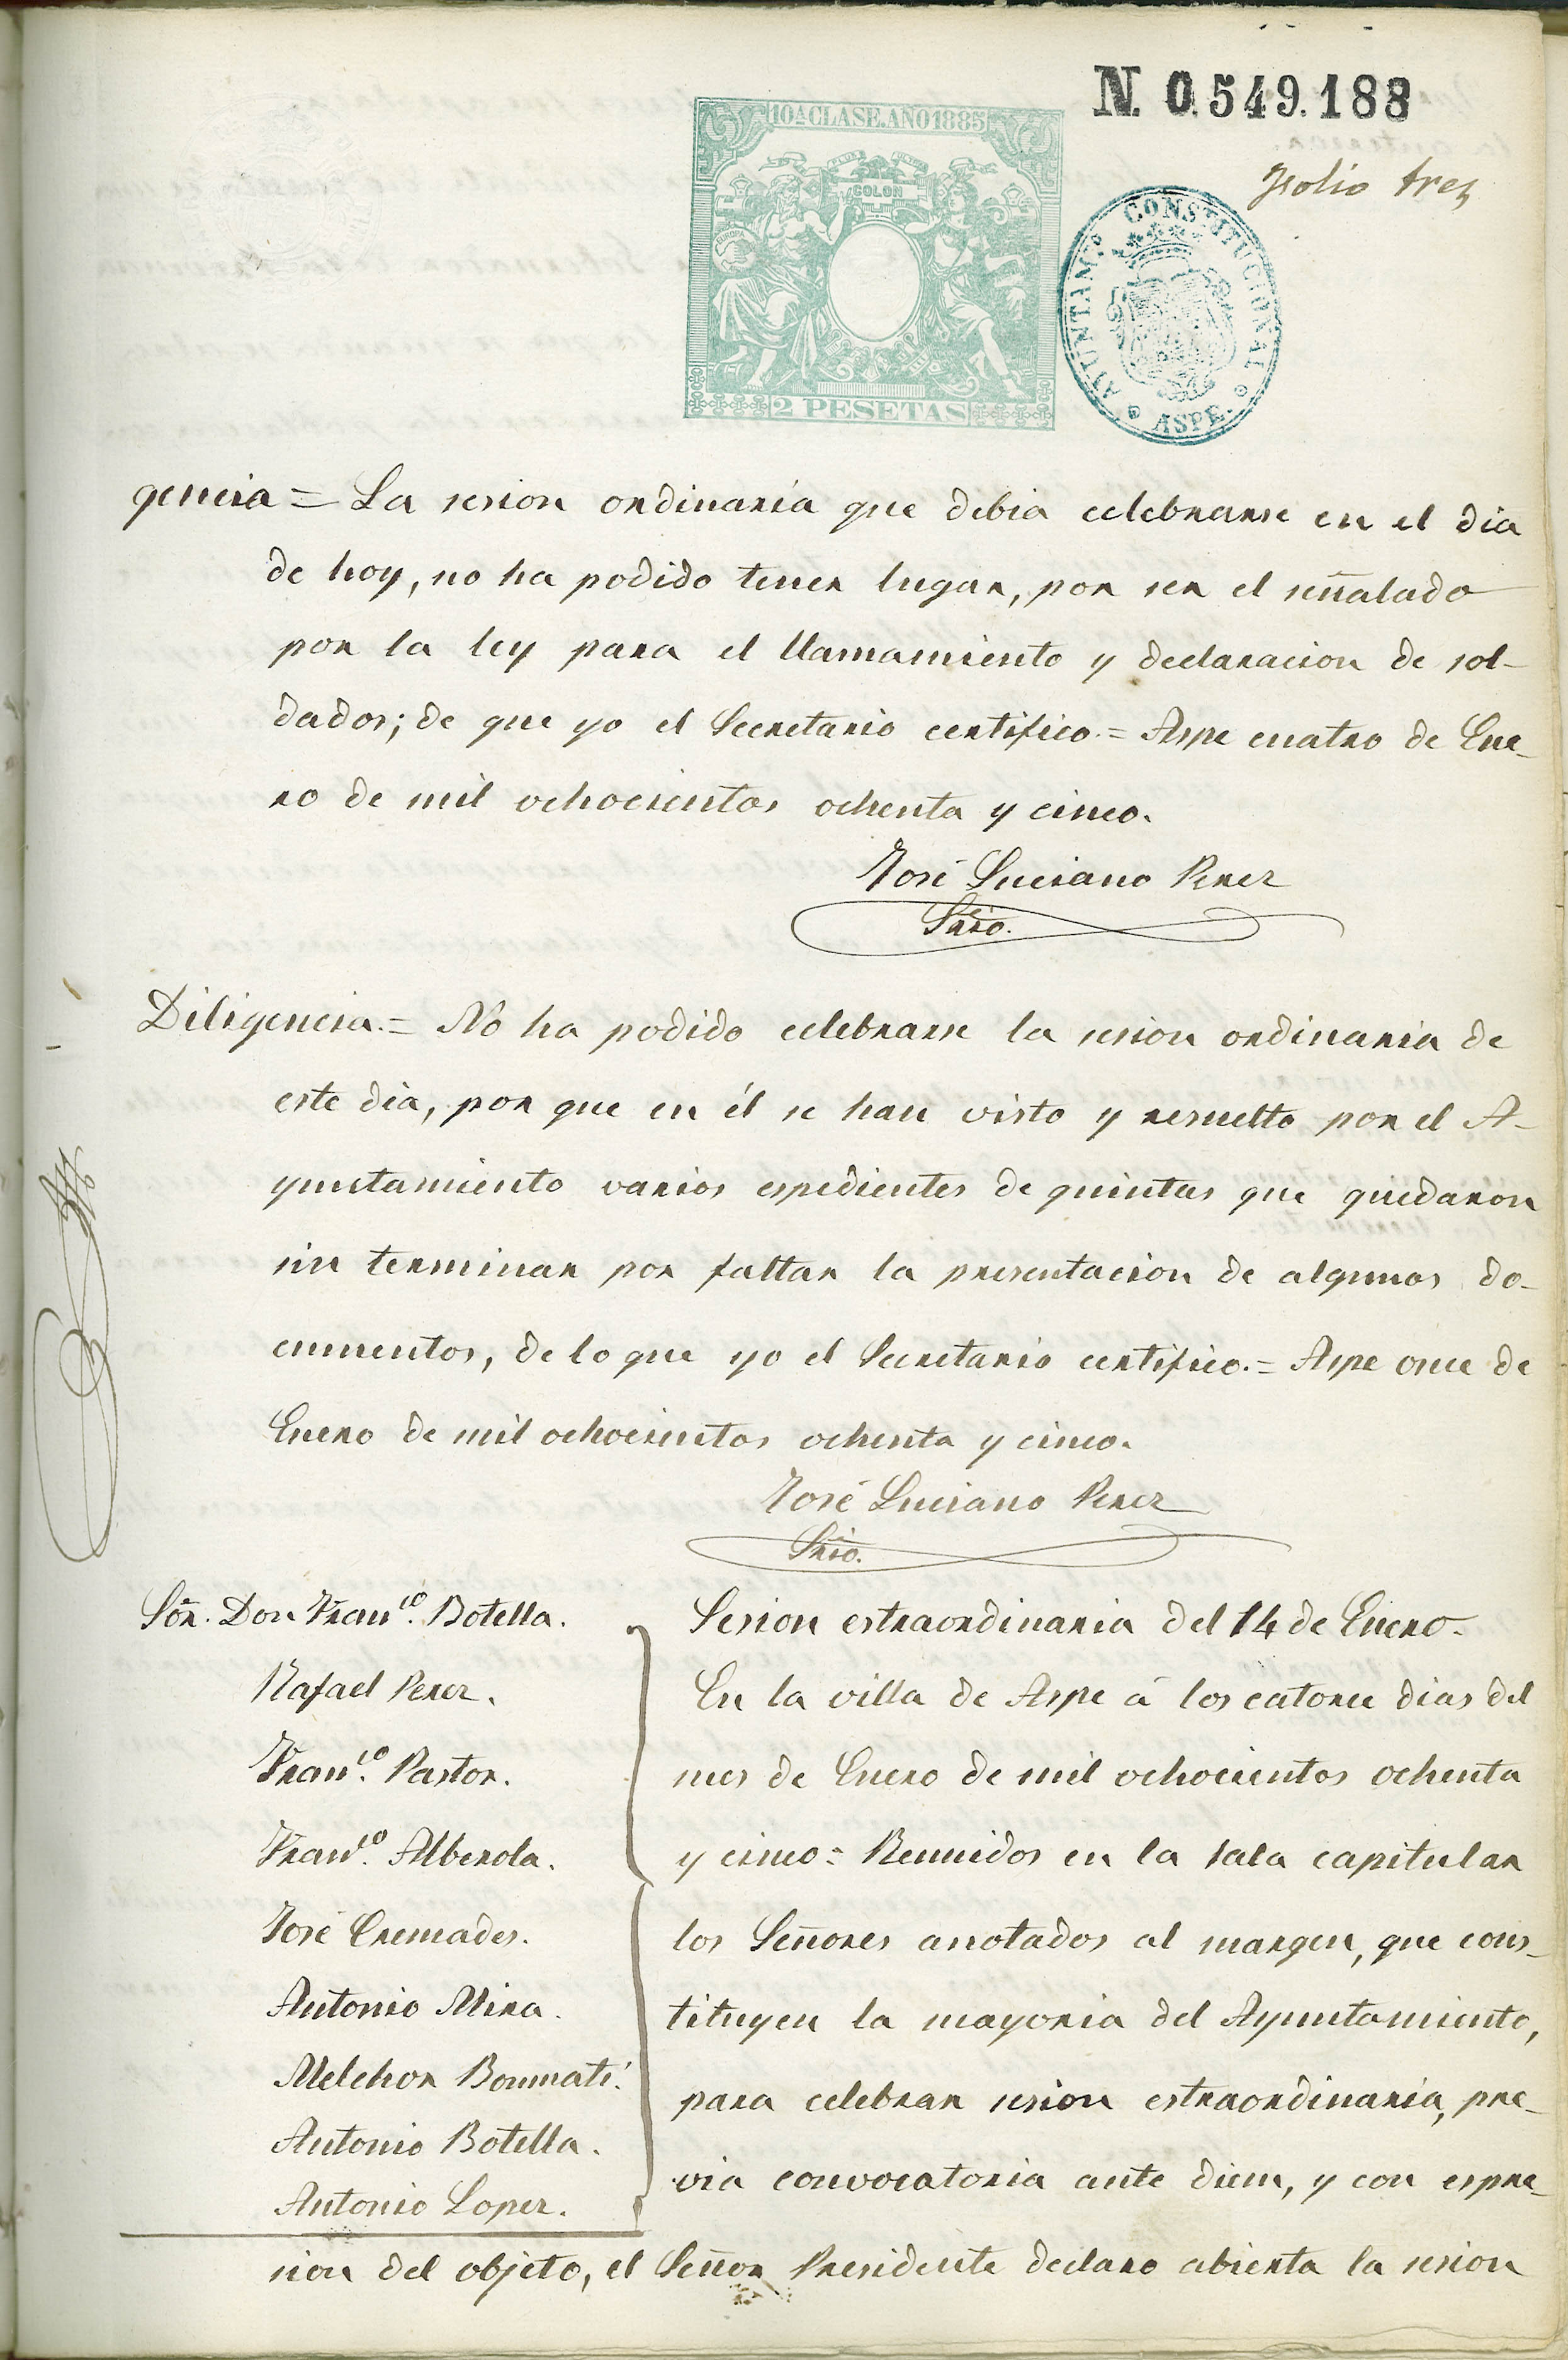 N. 0.549.188
folio tres
10ª CLASE. AÑO 1885
COLON
EUROPA
2 PESETAS
AYUNTAMto CONSTITUCIONAL
ASPE.
gencia = La sesion ordinaria que debia celebrarse en el dia
de hoy, no ha podido tener lugar, por ser el señalado
por la ley para el llamamiento y declaracion de sol-
dados; de que yo el Secretario certifico. = Aspe cuatro de Ene-
ro de mil ochocientos ochenta y cinco.
José Luciano Perez
Srio.
Diligencia. = No ha podido celebrarse la sesion ordinaria de
este dia, por que en él se han visto y resuelto por el A-
yuntamiento varios espedientes de quintas que quedaron
sin terminar por faltar la presentacion de algunos do-
cumentos, de lo que yo el Secretario certifico. = Aspe once de
Enero de mil ochocientos ochenta y cinco.
José Luciano Perez
Srio.
Sõr. Don Franco. Botella.
Rafael Perez.
Franco. Pastor.
Franco. Alberola.
José Cremades.
Antonio Mira.
Melchor Bonmatí.
Antonio Botella.
Antonio Lopez.
Sesion estraordinaria del 14 de Enero.
En la villa de Aspe á los catorce dias del
mes de Enero de mil ochocientos ochenta
y cinco = Reunidos en la sala capitular
los Señores anotados al margen, que cons-
tituyen la mayoria del Ayuntamiento,
para celebrar sesion estraordinaria, pre-
via convocatoria ante diem, y con espre-
sion del objeto, el Señor Presidente declaro abierta la sesion